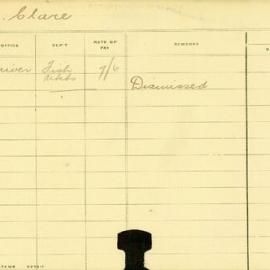 . Clare
OFFICE DEP'T RATE OF PAY REMARKS
river Fish 9/6
Dismissed